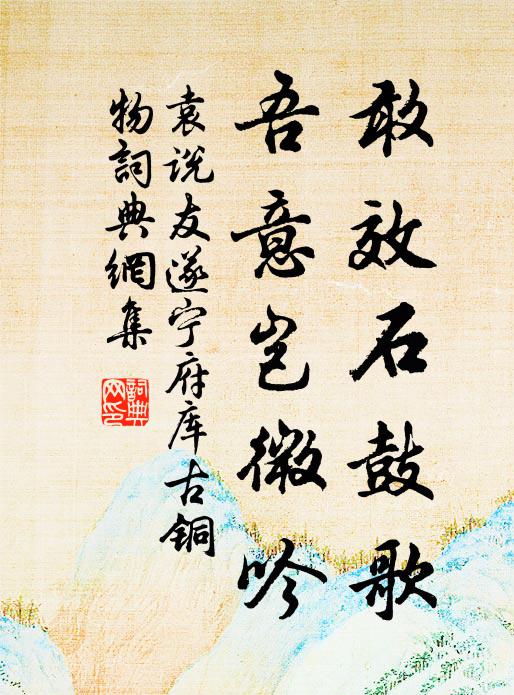 敢效石鼓歌
吾意岂微吟
袁说友遂宁府库古铜
物詞典網集
詞典
网印